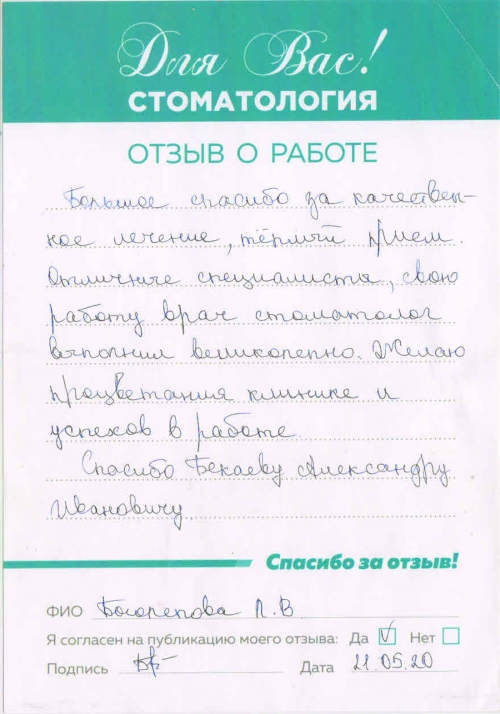 Для Вас!
СТОМАТОЛОГИЯ
ОТЗЫВ О РАБОТЕ
Большое спасибо за качествен-
ное лечение, тёплый приём.
Отличные специалисты, свою
работу врач стоматолог
выполнил великолепно. Желаю
процветания клинике и
успехов в работе.
Спасибо Бекаеву Александру
Ивановичу
Спасибо за отзыв!
ФИО Л. В.
Я согласен на публикацию моего отзыва: Да ☑ Нет ☐
Подпись Дата 21.05.20